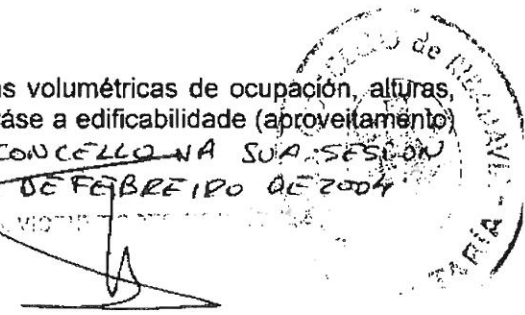 as volumétricas de ocupación, alturas,
áse a edificabilidade (aproveitamento)
CONCELLO NA SUA SESION
DE FEBREIRO DE 2004
de RIBADAVI
TARÍA -